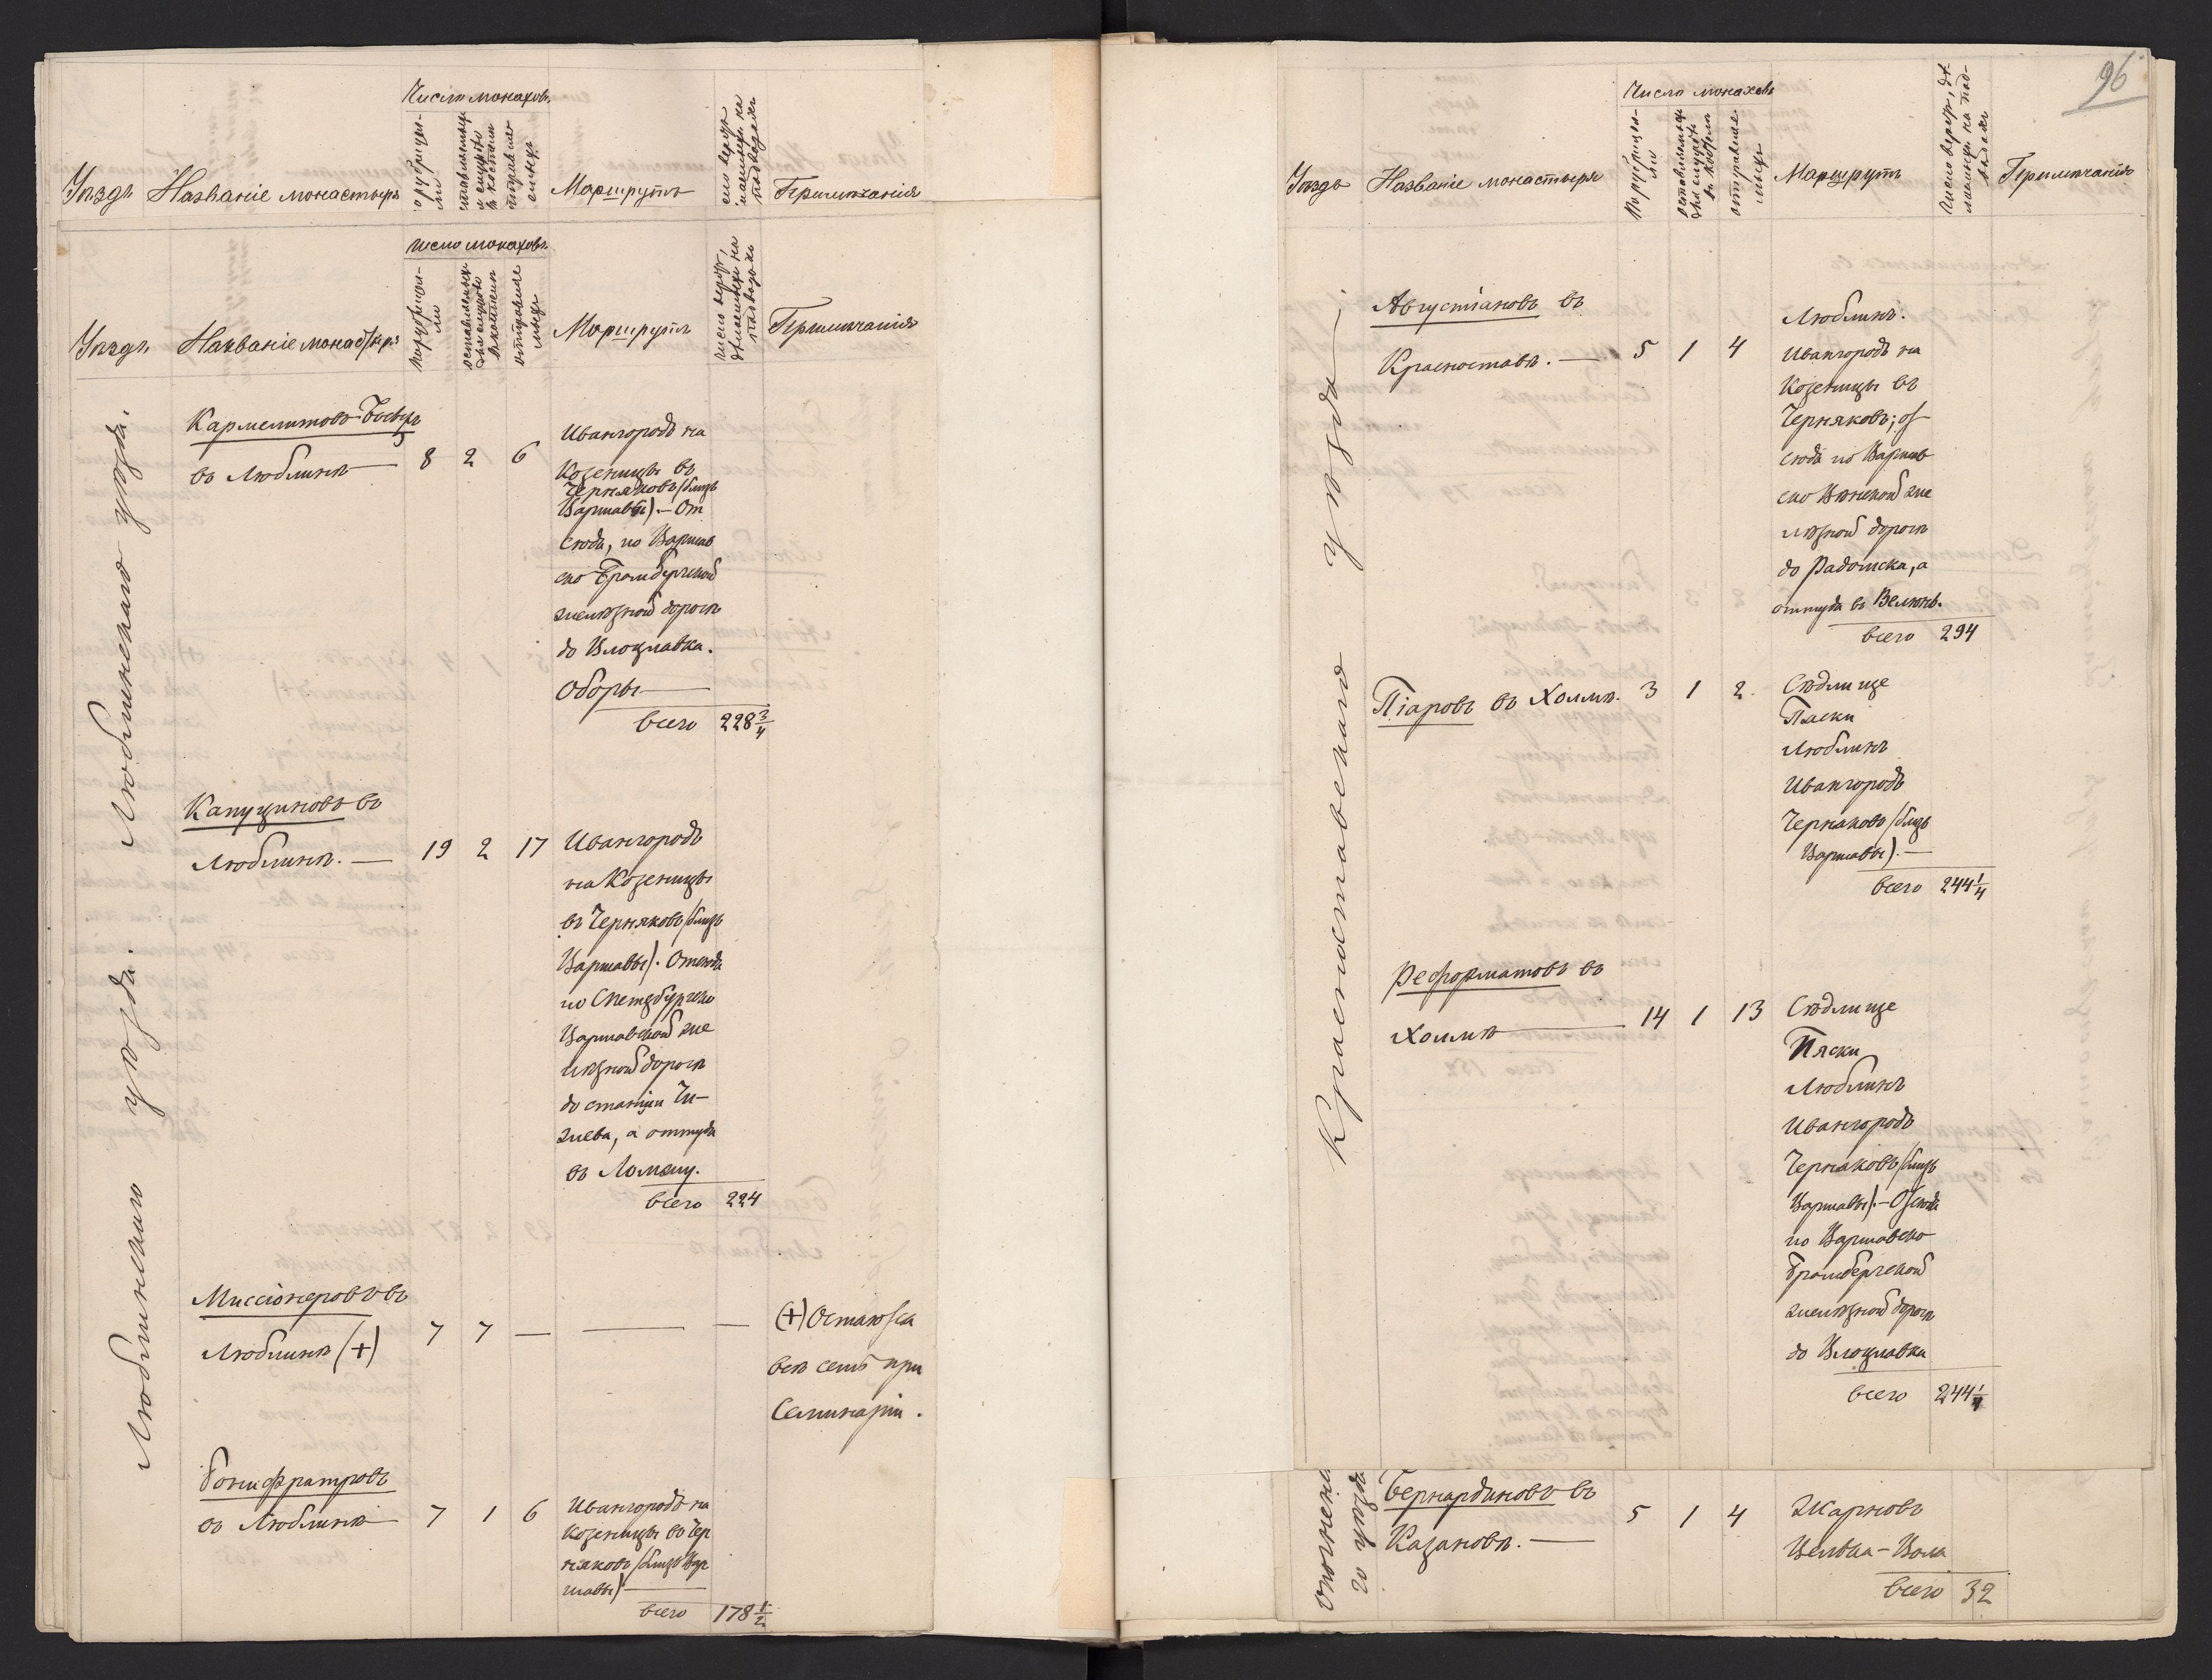 Число монаховъ
Уѣздъ Названіе монастыря Маршрутъ Примѣчанія
число монаховъ
Уѣздъ Названіе монастыря
по рубрицел-
ли
оставляемыхъ
для службы
въ костелѣ
отправляе
мыхъ
Маршрутъ
число верстъ,
дѣлаемыхъ на
подводахъ
Примѣчанія
Люблинскаго уѣзда. Люблинскаго уѣзда.
Кармелитовъ-Босыхъ
въ Люблинѣ — 8 2 6
Ивангородъ на
Козеницы въ
Черняковъ (близъ
Варшавы). — От
сюда, по Варшав
ско Бромбергской
желѣзной дорогѣ
до Влоцлавка.
Оборы —
всего 228 3/4
Капуциновъ въ
Люблинѣ. — 19 2 17
Ивангородъ
на Козеницы
въ Черняковъ (близъ
Варшавы). Отсюда
по Спетербургско
Варшавской же
лѣзной дорогѣ
до станціи Чи-
жева, а оттуда
въ Ломжу.
всего 224
Миссіонеровъ въ
Люблинѣ (+) 7 7 — — —
(+) Остаются
всѣ семь при
Семинаріи.
Бонифратровъ
въ Люблинѣ — 7 1 6
Ивангородъ на
Козеницы въ Чер
няковъ (близъ Вар
шавы) —
всего 178 1/2
96
Число монаховъ
Уѣздъ Названіе монастыря
по рубрицел-
ли
оставляемыхъ
для службы
въ костелѣ
отправляе
мыхъ
Маршрутъ
число верстъ, дѣ-
лаемыхъ на под-
водахъ
Примѣчанія
Красноставскаго уѣзда —
Августіановъ въ
Красноставѣ. — 5 1 4
Люблинъ.
Ивангородъ на
Козеницы въ
Черняковъ; от
сюда по Варшав
ско Вѣнской же
лѣзной дорогѣ
до Радомска, а
оттуда въ Велюнь.
всего 294
Піаровъ въ Холмѣ. 3 1 2.
Сѣдлище
Пяски
Люблинъ
Ивангородъ
Черняковъ (близъ
Варшавы). —
всего 244 1/4
Реформатовъ въ
Холмѣ — 14 1 13
Сѣдлище
Пяски
Люблинъ
Ивангородъ
Черняковъ (близъ
Варшавы). — Отсюда
по Варшавско
Бромбергской
желѣзной дорогѣ
до Влоцлавка
всего 244 1/4
Опоченска
го уѣзда
Бернардиновъ въ
Казановѣ. — 5 1 4
Жарновъ
Велька-Воля
всего 32